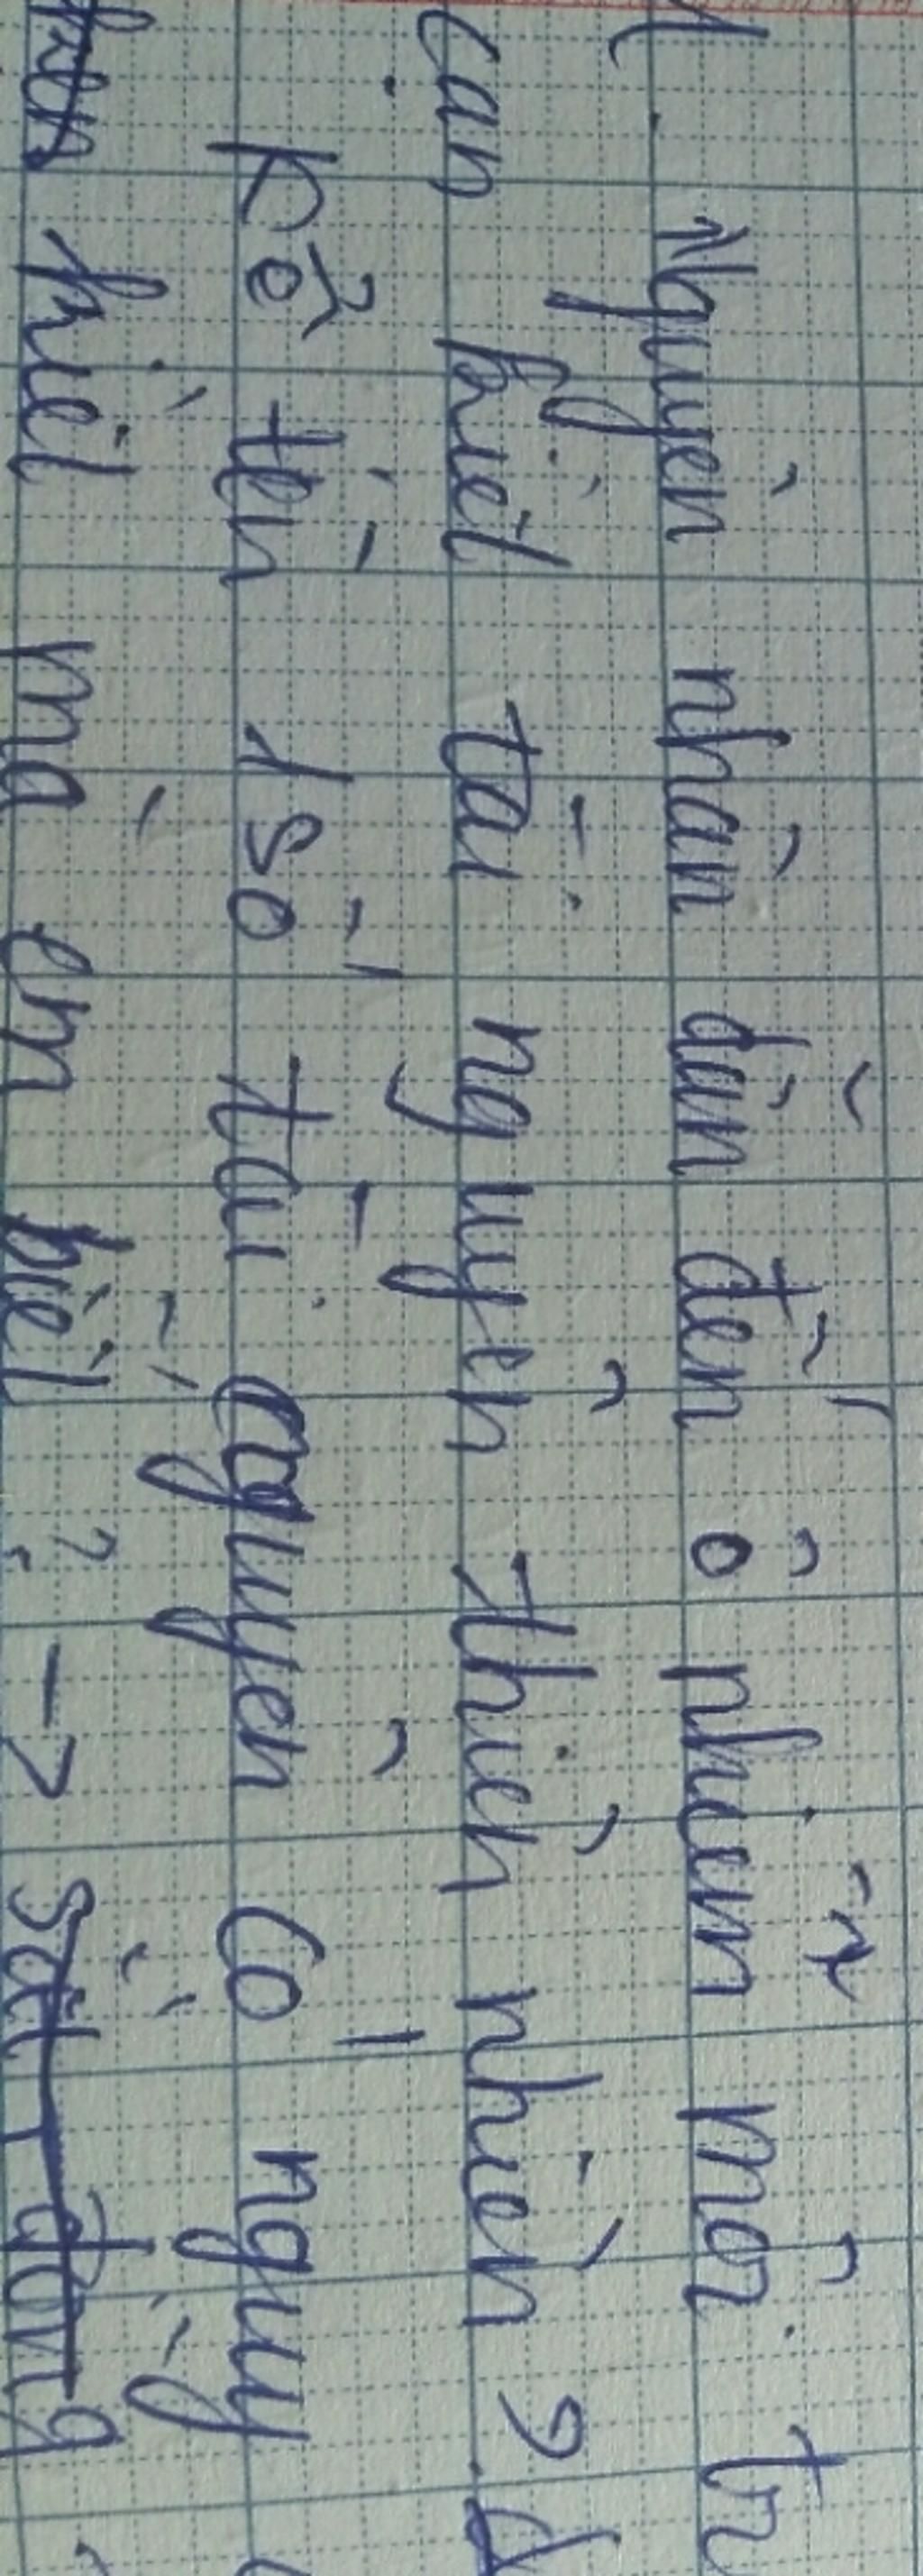 1. Nguyên nhân dẫn đến ô nhiễm môi tr
cạn kiệt tài nguyên thiên nhiên ?
Kể tên 1 số tài nguyên có nguy
kiệt mà em biết ? ->